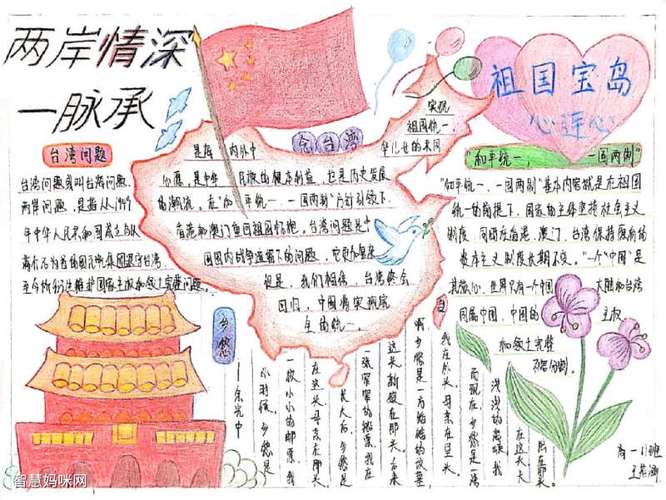 两岸情深
一脉承
台湾问题
台湾问题又叫台海问题、
两岸问题,是指从1949
年中华人民共和国成立以
来
实现
祖国统一,
是海内外中
华儿女的共同
心愿,是中华民族的根本利益,也是历史发展
的潮流,在“和平统一、一国两制”方针引领下
香港和澳门重回祖国怀抱,台湾问题是中
国国内战争遗留下的问题,
但是,我们相信,台湾终会
回归,中国将实现完
全的统一。
祖国宝岛
心连心
“和平统一、一国两制”
“和平统一、一国两制”基本内容就是在祖国
统一的前提下,国家的主体坚持社会主义
制度,同时在香港、澳门、台湾保持原有的
资本主义制度长期不变。“一个中国”是
其核心,世界只有一个中国,大陆和台湾
同属中国,中国的主权
和领土完整
不容分割。
乡愁
——余光中
小时候,乡愁是
一枚小小的邮票,我
在这头,母亲在那头
长大后,乡愁是
一张窄窄的船票,我在
这头,新娘在那头,后来
啊,乡愁是一方矮矮的坟墓
我在外头,母亲在里头
而现在,乡愁是
浅浅的海峡,我
在这头,大
陆在那头
智慧妈咪网